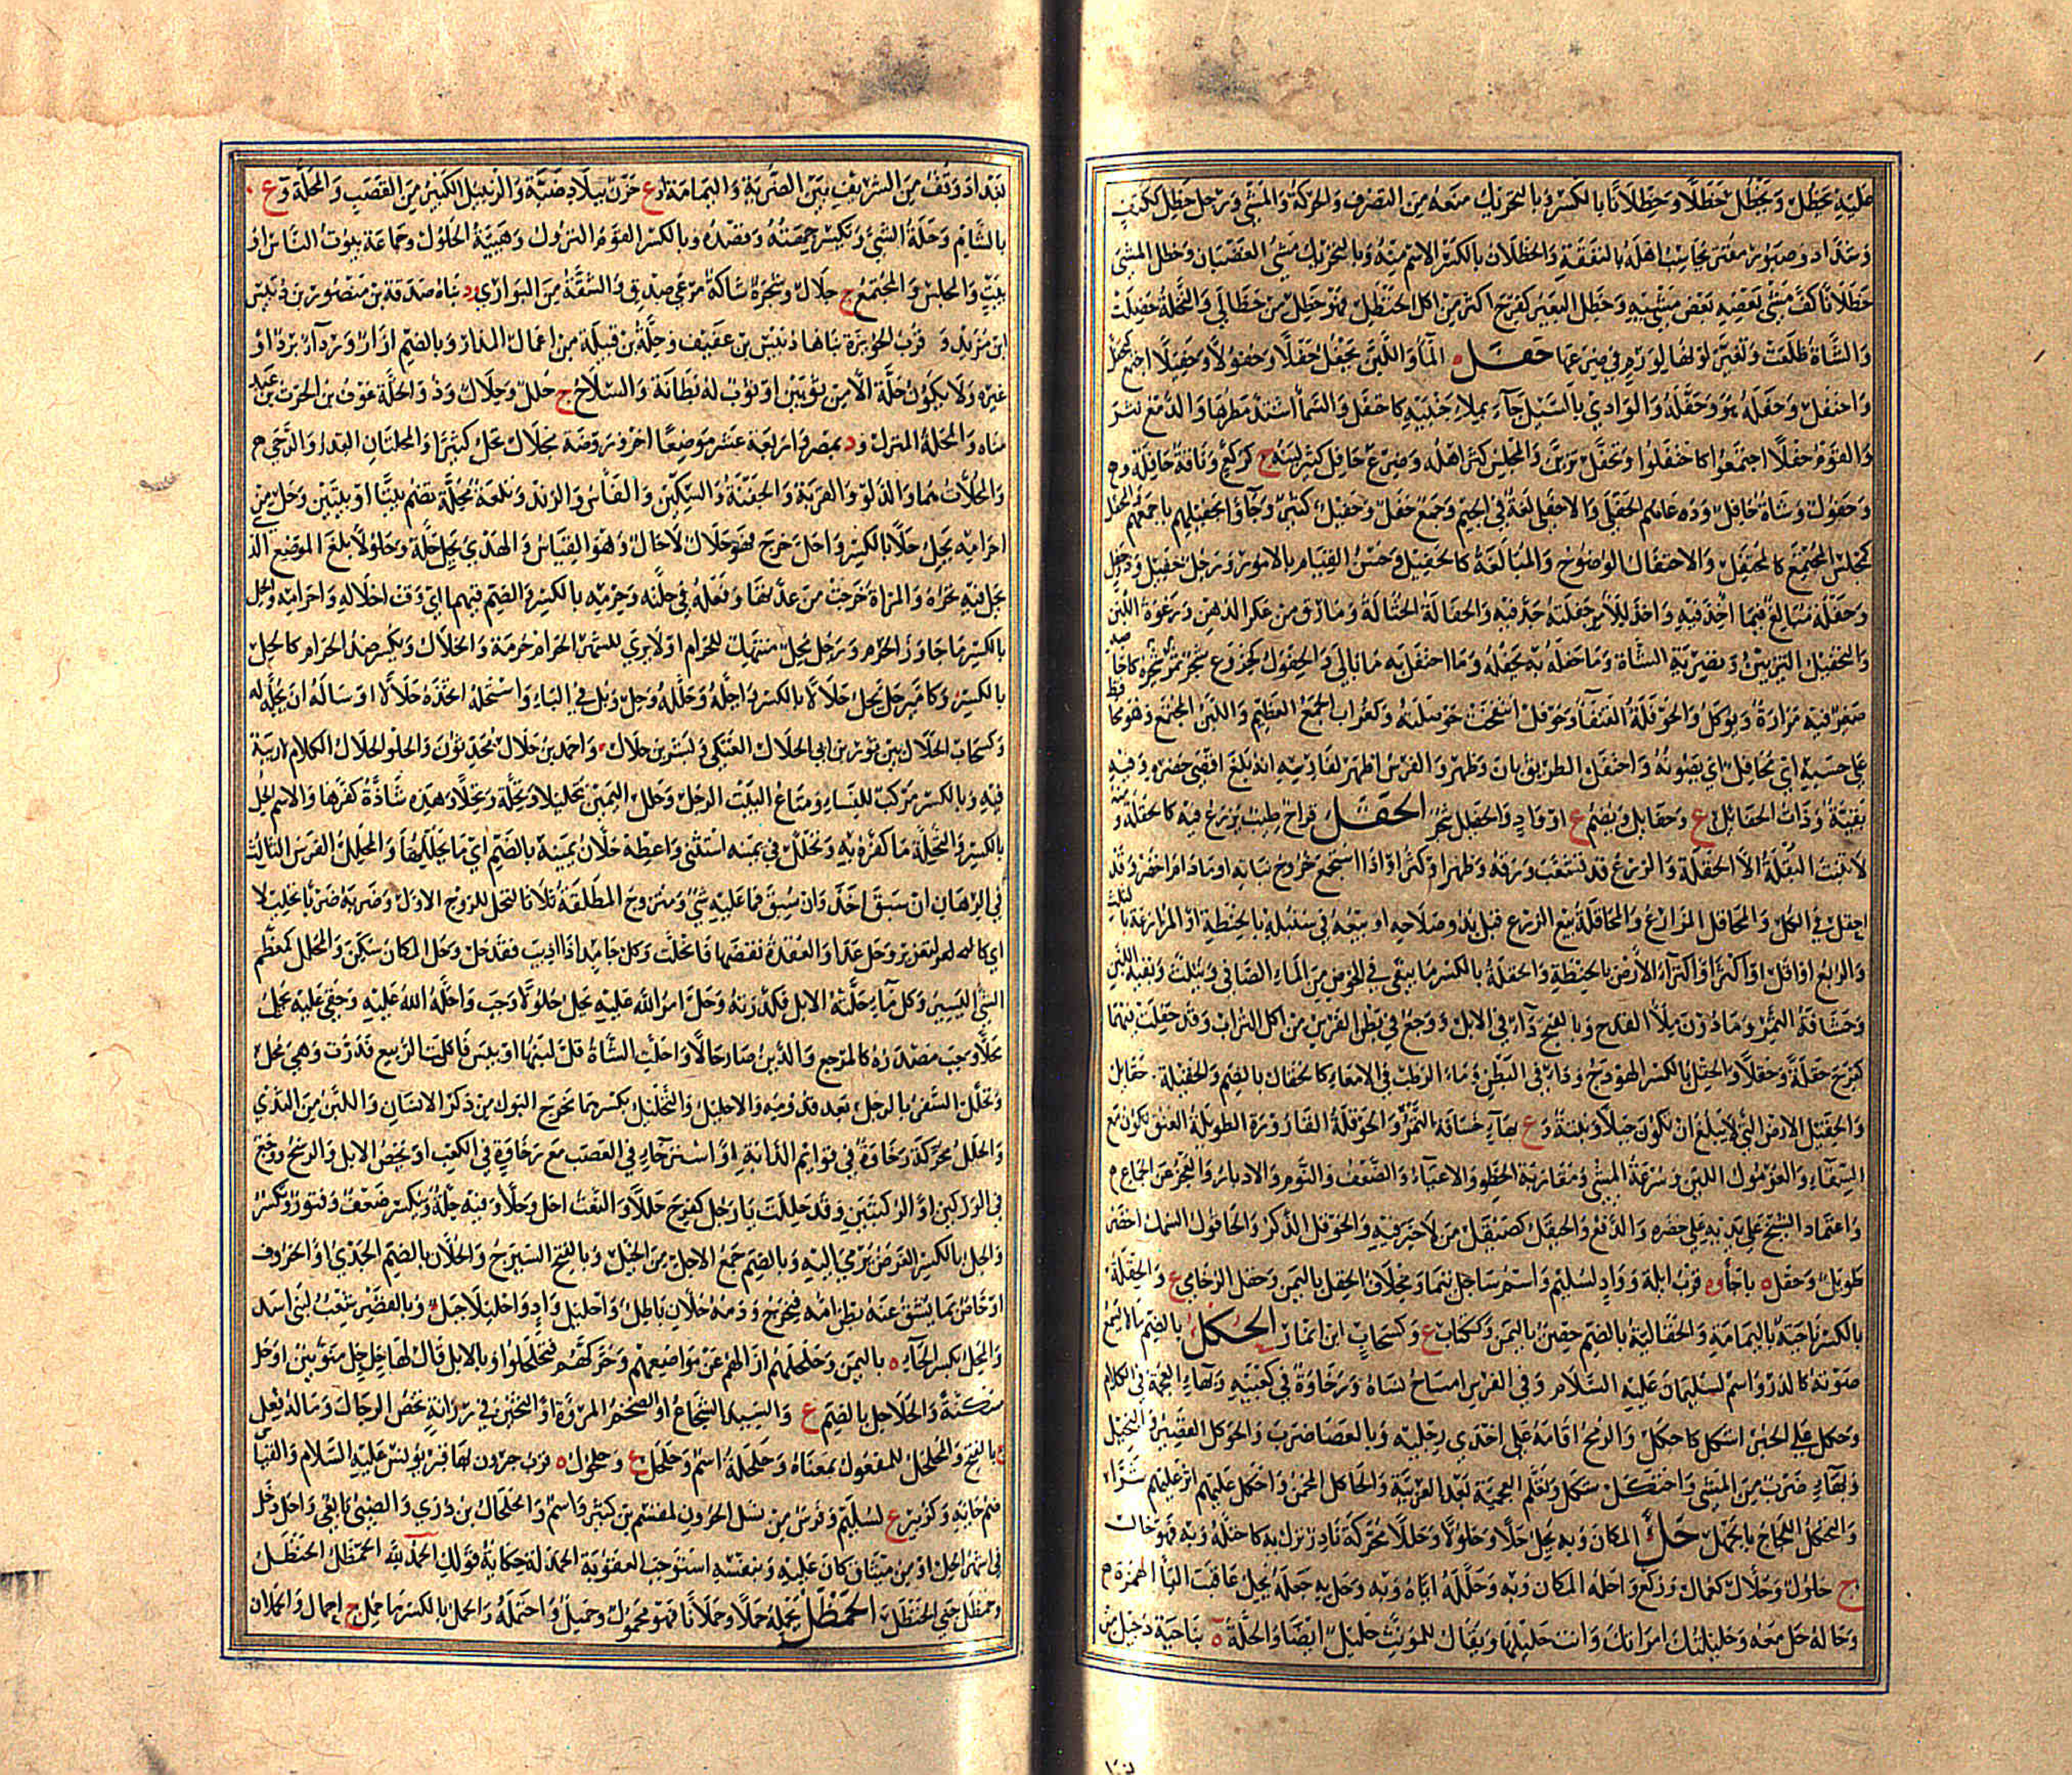 عليه يحظل ويحظل حظلا وحظلانا بالكسر وبالتحريك منعه من التصرف والحركة والمشي ورجل حظل ككتف
وشداد وصبور مقتر يحاسب اهله بالنفقة والحظلان بالكسر الاسم منه وبالتحريك مشي الغضبان وحظل المشي
حظلانا كف مشى بعضه بعض مشيه وحظل البعير كفرح اكثر من اكل الحنظل فهو حظل من حظالى والنخلة
والشاة ظلعت وتغير لونها لورم في ضرعها حفل الماء واللبن يحفل حفلا وحفولا وحفيلا اجتمع كتحفل
واحتفل وحفله هو وحفله والوادي بالسيل جاء بملء جنبيه كاحتفل والسماء اشتد مطرها والدمع نثر
والقوم حفلا اجتمعوا كاحتفلوا وتحفل تزين والمجلس كثر اهله وضرع حافل كثير لبنه ج كركع وناقة حافلة
وحفول وشاة حافل ودعاهم الحفلى والاحفلى لغة في الجيم وجمع حفل وحفيل كثير وجاؤا بحفيلهم باجمعهم والمحفل
كمجلس المجتمع كالمحتفل والاحتفال الوضوح والمبالغة كالحفيل وحسن القيام بالامور ورجل حفيل وذو حفل
وحفلة مبالغ فيما اخذ فيه واخذ للامر حفلته جد فيه والحفالة الحثالة وما رق من عكر الدهن ورغوة اللبن
والتحفيل التزيين وتصرية الشاة وما حفله به يحفله وما احتفل به ما بالى والحفول كخروع شجر ثمره
صغر فيه مرارة ويوكل والحوفلة القنفاء وحوفل انتفخت حوفلته وكغراب الجمع العظيم واللبن المجتمع وهو محافظ
على حسبه اي محافل اي يصونه واحتفل الطريق بان وظهر والفرس اظهر لفارسه انه بلغ اقصى حضره وفيه
بقية وذات الحفائل ع وحفايل ويضم ع او واد والحفلل شجر الحقل قراح طيب يزرع فيه كالحقلة ومنه
لا تنبت البقلة الا الحقلة والزرع قد تشعب ورقه وظهر او كثر او اذا استجمع خروج نباته او ما دام اخضر وقد
احقل في الكل والمحاقل المزارع والمحاقلة بيع الزرع قبل بدو صلاحه او بيعه في سنبله بالحنطة او المزارعة بالثلث
والربع او اقل او اكثر او اكتراء الارض بالحنطة والحقلة بالكسر ما يبقى في الحوض من الماء الصافي ويثلث وبقية اللبن
وحشافة التمر وما دون ملء القدح وبالفتح داء في الابل ووجع في بطن الفرس من اكل التراب وقد حقلت فيهما
كفرح حقلة وحقلا والحقل بالكسر الهودج وداء في البطن وماء الرطب في الامعاء كالحقال بالضم والحقيلة ج حقايل
والحقيل الارض التي لا تبلغ ان تكون جبلا ونبت وع بهاء حشافة التمر والحوقلة القارورة الطويلة العنق تكون مع
السقاء والغرمول اللين وسرعة المشي ومقاربة الخطو والاعياء والضعف والنوم والادبار والعجز عن الجماع
واعتماد الشيخ على يديه على خصره والدفع والحيقل كصيقل من لا خير فيه والحوقل الذكر والحاقول السمك اخضر
طويل وحقل ة باجأ وة قرب ايلة وواد لسليم واسم ساحل تيما ومخلاف الحقل باليمن وحقل الرخامى ع والحقلة
بالكسر ناحية باليمامة والحقالية بالضم حصن باليمن وككتاب ع وكسحاب ابن انمار الحكل بالضم ما لا يسمع
صوته كالذر واسم لسليمان عليه السلام وفي الفرس امساح نساه ورخاوة في كعبيه وبهاء العجمة في الكلام
وحكل علي الخبر اشكل كاحكل والرمح اقامه على احدى رجليه وبالعصا ضرب والحوكل القصير والبخيل
وبهاء ضرب من المشي واحتكل شكل وتعلم العجمية بعد العربية والحاكل المخمن واحكل عليهم اثر عليهم شرا
والتحكل اللجاج بالجهل حل المكان وبه يحل حلا وحلولا وحللا محركة نادر نزل به كاحتله وبه فهو حال
ج حلول وحلال كعمال وركع واحله المكان وبه وحلله اياه وبه وحل به جعله يحل عاقبت الباء الهمزة
وحاله حل معه وحليلتك امراتك وانت حليلها ويقال للمونث حليل ايضا والحلة ة بناحية دجيل من
بغداد وقف من الشريف بين الضرية واليمامة او ع حزن ببلاد ضبة والزنبيل الكبير من القصب والمحلة وع
بالشام وحلة الشيء وتكسر جهته وقصده وبالكسر القوم النزول وهيئة الحلول وجماعة بيوت الناس او
بيت والمجلس والمجتمع ج حلال وشجرة شاكة مرعى صدق والشقة من البواري ود بناه صدقة بن منصور بن دبيس
ابن مزيد وة قرب الحويزة بناها دبيس بن عفيف وحلة بن قيلة من اعمال المذار وبالضم ازار ورداء برد او
غيره ولا يكون حلة الا من ثوبين او ثوب له بطانة والسلاح ج حلل وحلال وذو الحلة عوف بن الحرث بن عبد
مناة والمحلة المنزل ود بمصر واربعة عشر موضعا اخر وروضة محلال تحل كثيرا والمحلتان القدر والرحى
والمحلات هما والدلو والقربة والجفنة والسكين والفأس والزند وتلعة محلة تضم بيتا او بيتين وحل من
احرامه يحل حلا بالكسر واحل خرج فهو حلال لا حال وهو القياس والهدي يحل حلة وحلولا بلغ الموضع الذي
يحل فيه نحره والمراة خرجت من عدتها وفعله في حله وحرمه بالكسر والضم فيهما اي وقت احلاله واحرامه والحل
بالكسر ما جاوز الحرم ورجل محل منتهك للحرام او لا يرى للشهر الحرام حرمة والحلال ويكسر ضد الحرام كالحل
بالكسر وكامير حل يحل حلالا بالكسر واحله الله وحلله وحل وبل في الباء واستحله اتخذه حلالا او ساله ان يحله له
وكسحاب الحلال بن ثور بن ابي الحلال العتكي وبشر بن حلال واحمد بن حلال محدثون والحلو الحلال الكلام لا ريبة
فيه وبالكسر مركب للنساء ومتاع البيت الرحل وحلل اليمين تحليلا وتحلة وتحلا وهذه شاذة كفرها والاسم الحل
بالكسر والتحلة ما كفر به وتحلل في يمينه استثنى واعطه حلان يمينه بالضم اي ما يحللها والمحلل الفرس الثالث
في الرهان ان سبق اخذ وان سبق فما عليه شي ومتزوج المطلقة ثلاثا لتحل للزوج الاول وضربه ضربا تحليلا
اي كالتعزير وحل عدا والعقدة نقضها فانحلت وكل جامد اذا اذيب فقد حل وحل المكان سكن والمحلل كمعظم
الشي اليسير وكل ماء حلته الابل فكدرته وحل امر الله عليه يحل حلولا وجب واحله الله عليه وحقي عليه يحل
محلا وجب مصدره كالمرجع والدين صار حالا واحلت الشاة قل لبنها او يبس فاكلت الربيع فدرت وهي محل
وتحلل السفر بالرجل بعد قدومه والاحليل والتحليل بكسرهما مخرج البول من ذكر الانسان واللبن من الثدي
والحلل محركة رخاوة في قوايم الدابة او استرخاء في العصب مع رخاوة في الكعب او يخص الابل والرسح ووجع
في الوركين او الركبتين وقد حللت يا رجل كفرح حللا والنعت احل وحلاء وفيه حلة ويكسر ضعف وفتور وتكسر
والحل بالكسر الغرض يرمى اليه وبالضم جمع الاحل من الخيل وبالفتح الشيرج والحلان بالضم الجدي او الخروف
او خاص بما يشق عنه بطن امه فيخرج ودمه حلان باطل واحليل واد واحليلاء جبل وبالقصر شعب لبني اسد
والمحل بكسر الحاء ة باليمن وحلحلهم ازالهم عن مواضعهم وحركهم فتحلحلوا وبالابل قال لها حل حل منونين او حل
مسكنة والحلاحل بالضم ع والسيد الشجاع او الضخم المروة او الثخين في رزانة يخص الرجال وما له فعل
ج بالفتح والمحلحل للمفعول بمعناه وحلحلة اسم وحلحل ع وحلحول ة قرب جيرون بها قبر يونس عليه السلام والقياس
ضم حايه وكزبير ع لسليم وفرس من نسل الحرون لمقسم بن كثير واسم والحلحال بن دري والضبي تابعي واحل دخل
في اشهر الحل او من ميثاق كان عليه وبنفسه استوجب العقوبة الحمدلة حكاية قولك الحمد لله الحمظل الحنظل
وحمظل جنى الحنظل الحمظل يحمله حملا وحملانا فهو محمول وحميل واحتمله والحمل بالكسر ما حمل ج احمال والحملان